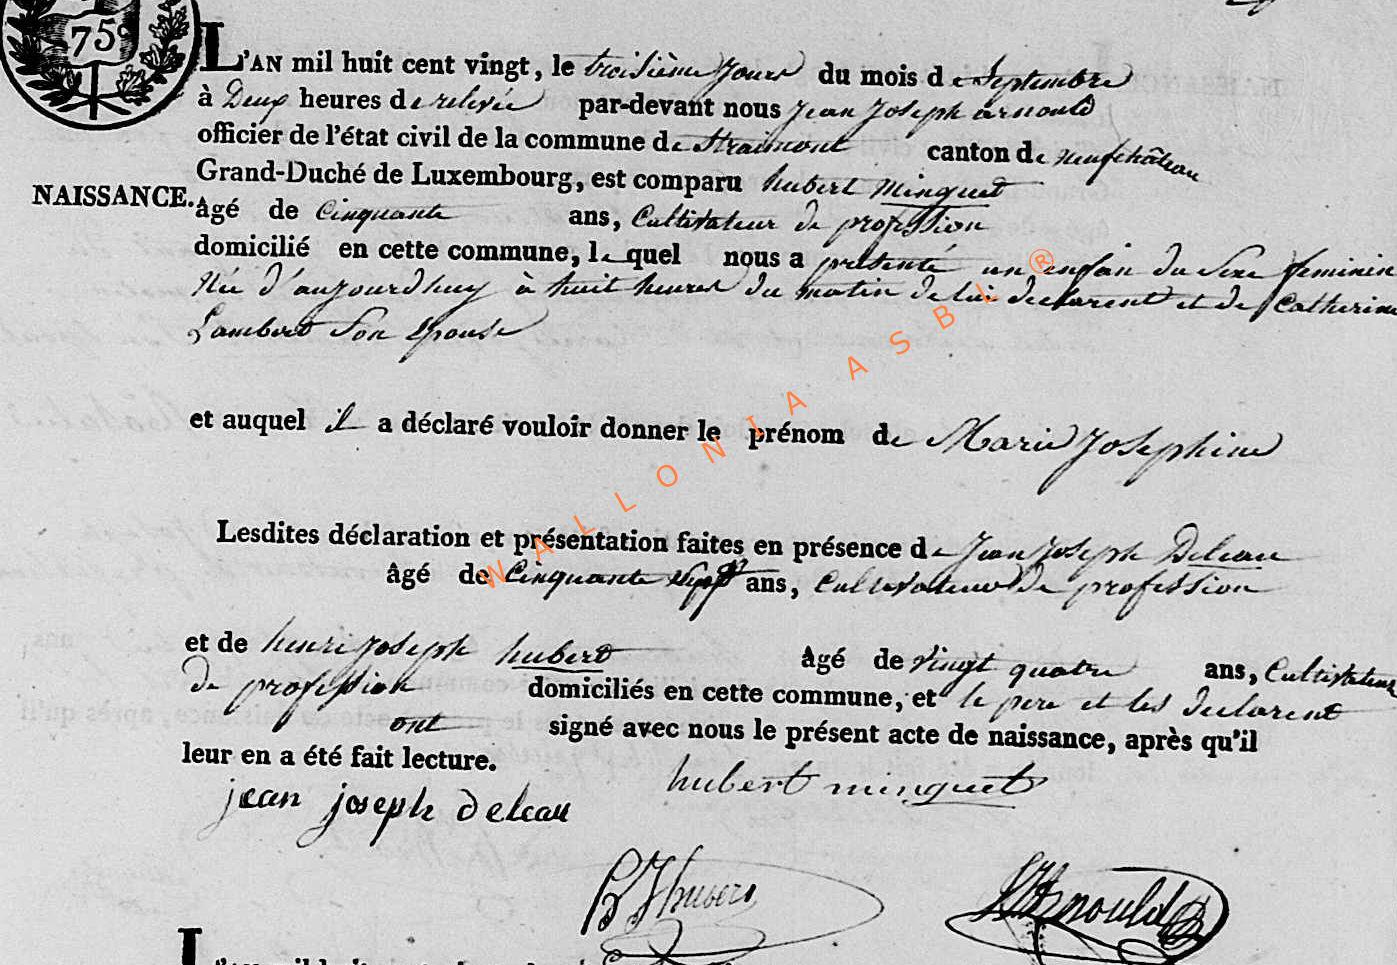 75c
L'AN mil huit cent vingt, le troisième jours du mois de Septembre
à Deux heures de relevée par-devant nous jean joseph arnould
officier de l'état civil de la commune de Straimont canton de neufchâteau
Grand-Duché de Luxembourg, est comparu hubert minguet
NAISSANCE. âgé de Cinquante ans, Cultivateur de profession
domicilié en cette commune, lequel nous a présenté un enfan du Sexe feminin
Née d'aujourdhuy à huit heures du matin de lui declarent et de Catherine
Lambert Son Epouse
et auquel il a déclaré vouloir donner le prénom de Marie Josephine
Lesdites déclaration et présentation faites en présence de Jean Joseph Deleau
âgé de Cinquante ans, Cultivateur De profession
et de henri joseph hubert âgé de vingt quatre ans, Cultivateur
de profession domiciliés en cette commune, et le pere et les declarent
ont signé avec nous le présent acte de naissance, après qu'il
leur en a été fait lecture.
hubert minguet
jean joseph deleau
H J hubert
JJ Arnould
WALLONIA ASBL ®